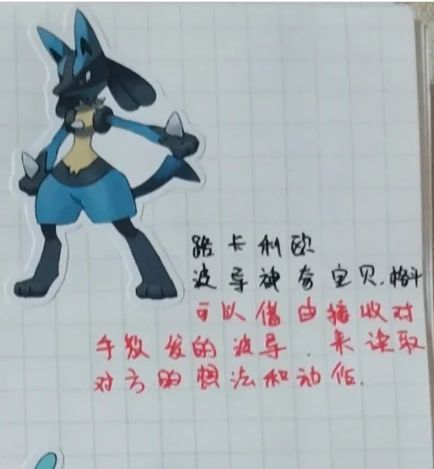 路卡利欧
波导神奇宝贝.格斗
可以借由接收对
手散发的波导.来读取
对方的想法和动作.